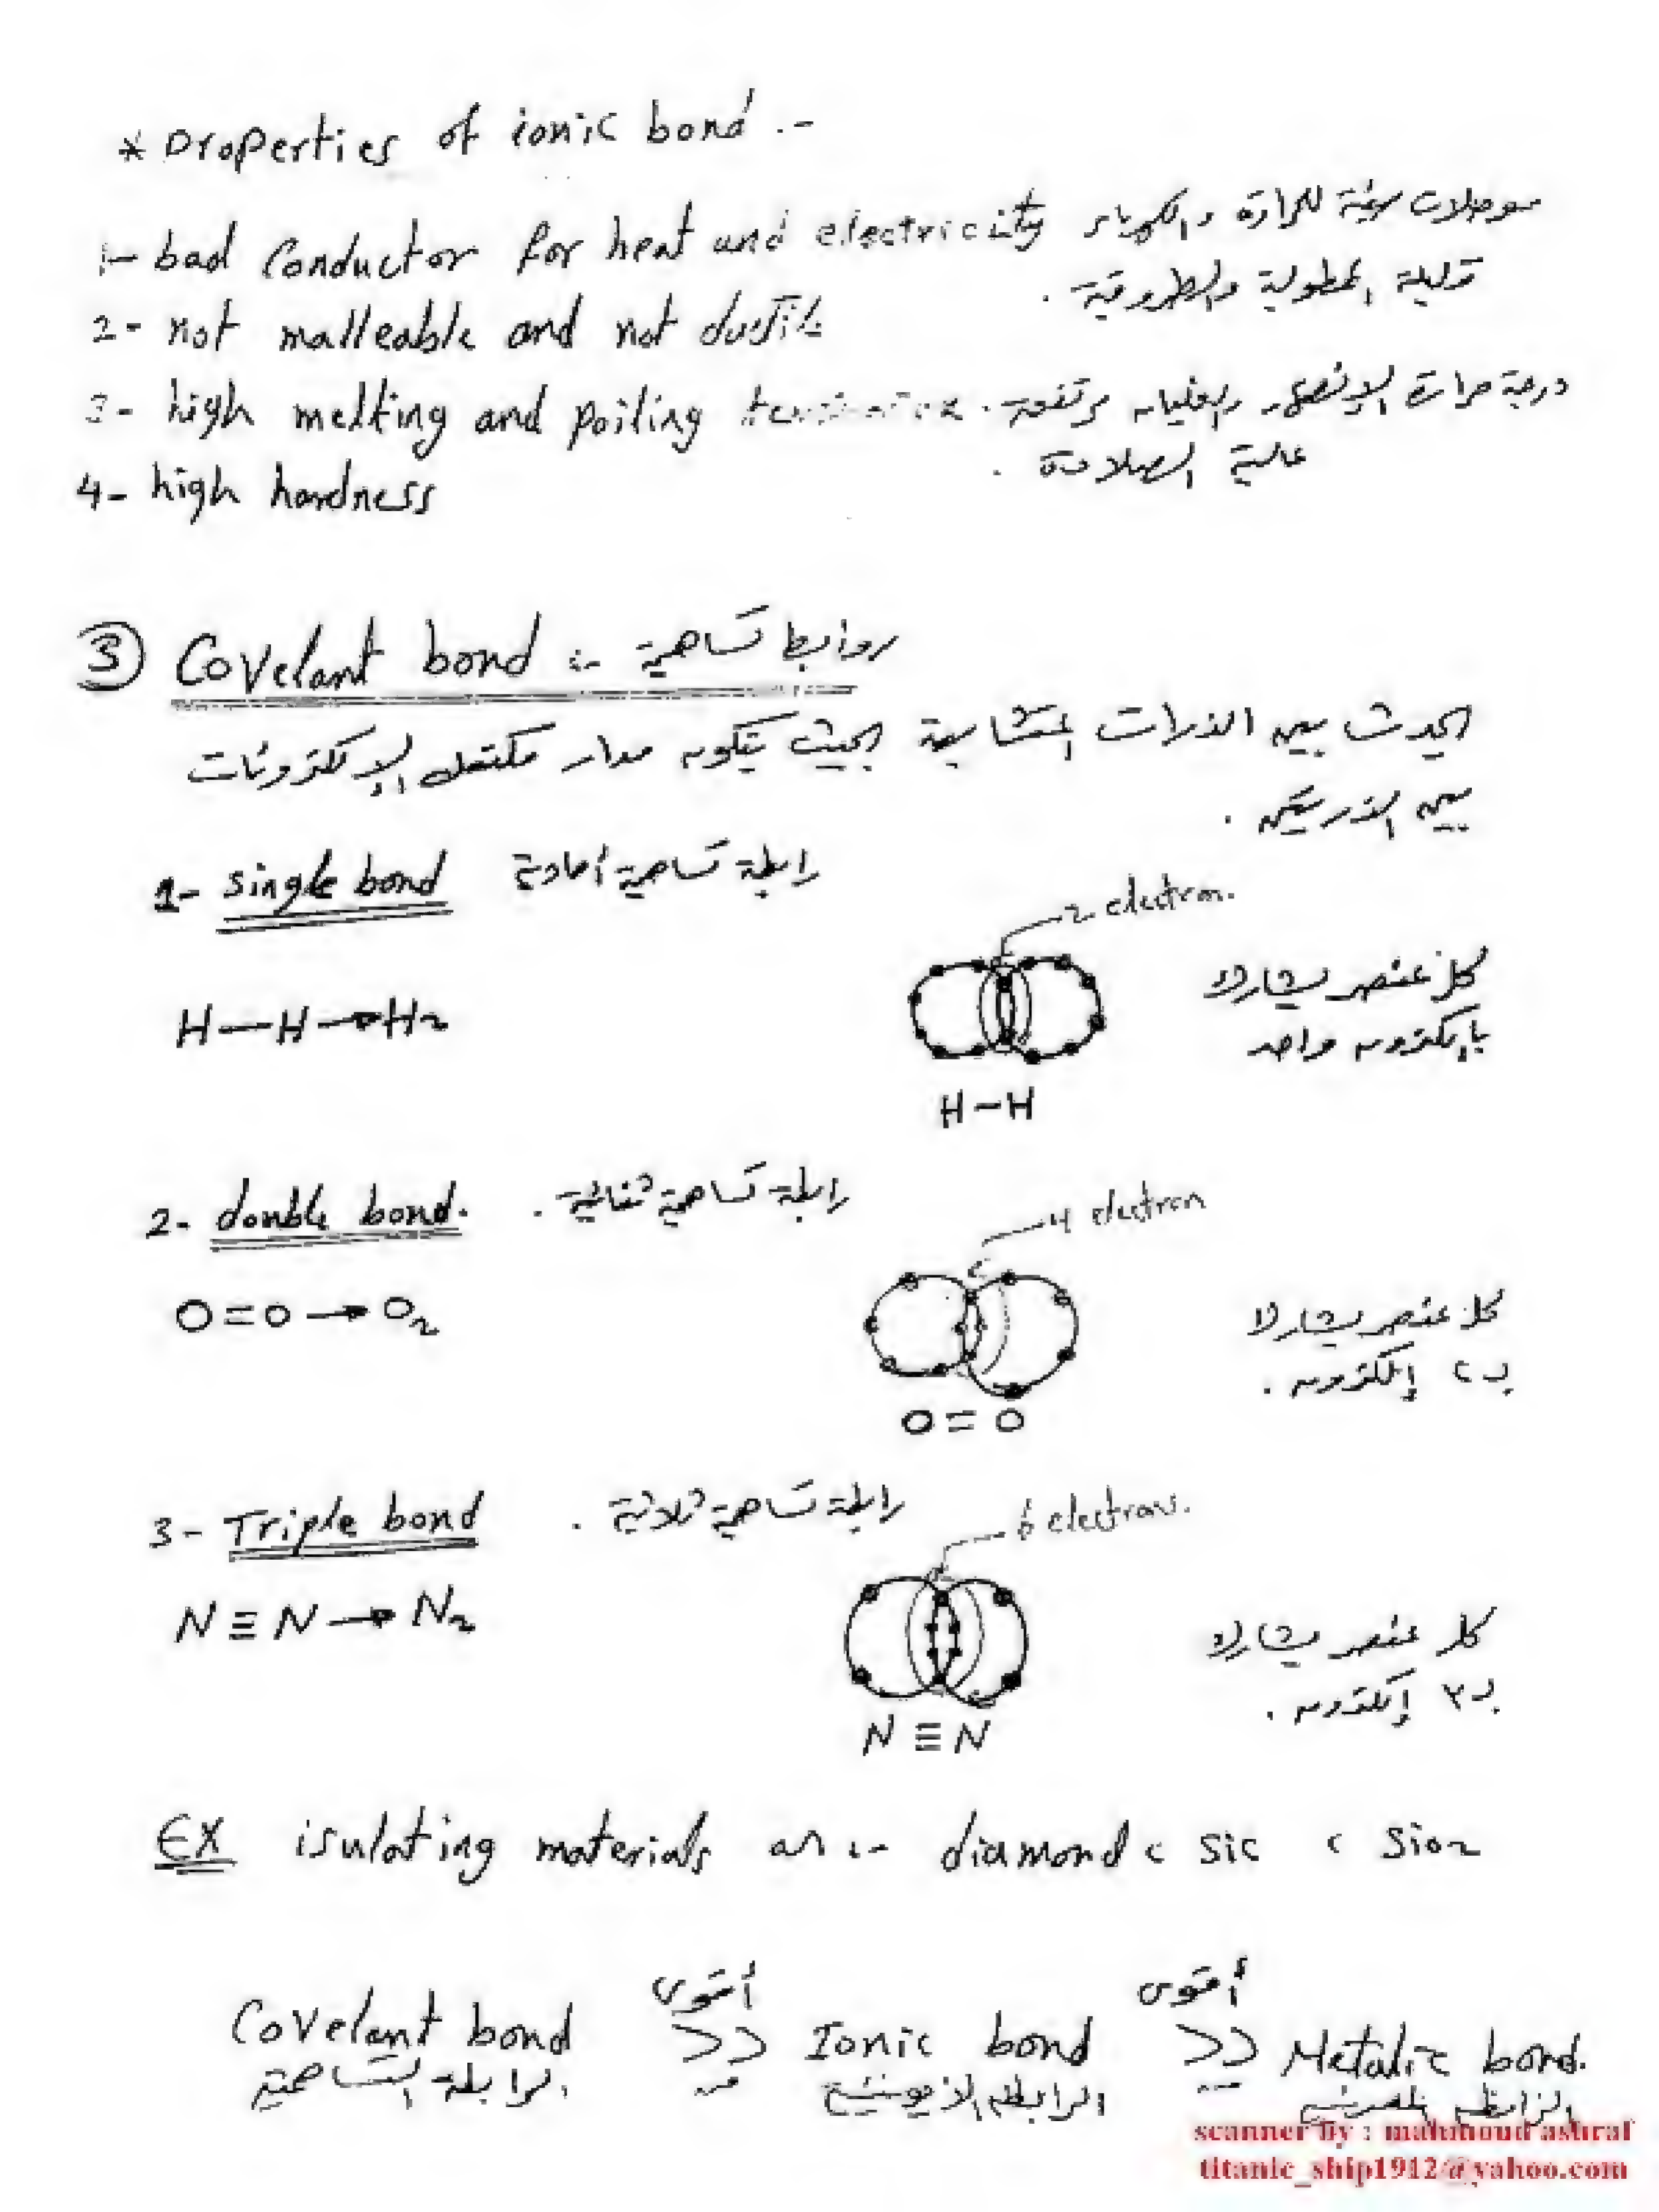 * Properties of ionic bond :-
1- bad Conductor for heat and electricity موصلات سيئة للحرارة والكهرباء
قليلة المطولية والطروقية .
2- not malleable and not ductile
3- high melting and poiling درجة حرارة الإنصهار والغليان مرتفعة .
عالية الصلادة .
4- high hardness
③ Covelant bond :- روابط تساهمية
تحدث بين الذرات المتشابهة بحيث يتكون مدار مكتمل الإلكترونات
بين الذرتين .
1- single bond رابطة تساهمية أحادية
2 electron.
H—H → H2
كل عنصر يشارك
بإلكترون واحد
H-H
2- double bond. رابطة تساهمية ثنائية .
4 electron
O=O → O2
كل عنصر يشارك
بـ ٢ إلكترون .
O = O
3- Triple bond رابطة تساهمية ثلاثية .
6 electrons.
N ≡ N → N2
كل عنصر يشارك
بـ ٣ إلكترون .
N ≡ N
EX isulating materials as :- diamond ، sic ، Sio2
أقوى أقوى
Covelant bond >> Ionic bond >> Metalic bond.
الرابطة التساهمية من الرابطة الأيونية من الرابطة المعدنية
scanner by : mahmoud ashraf
titanic_ship1912@yahoo.com